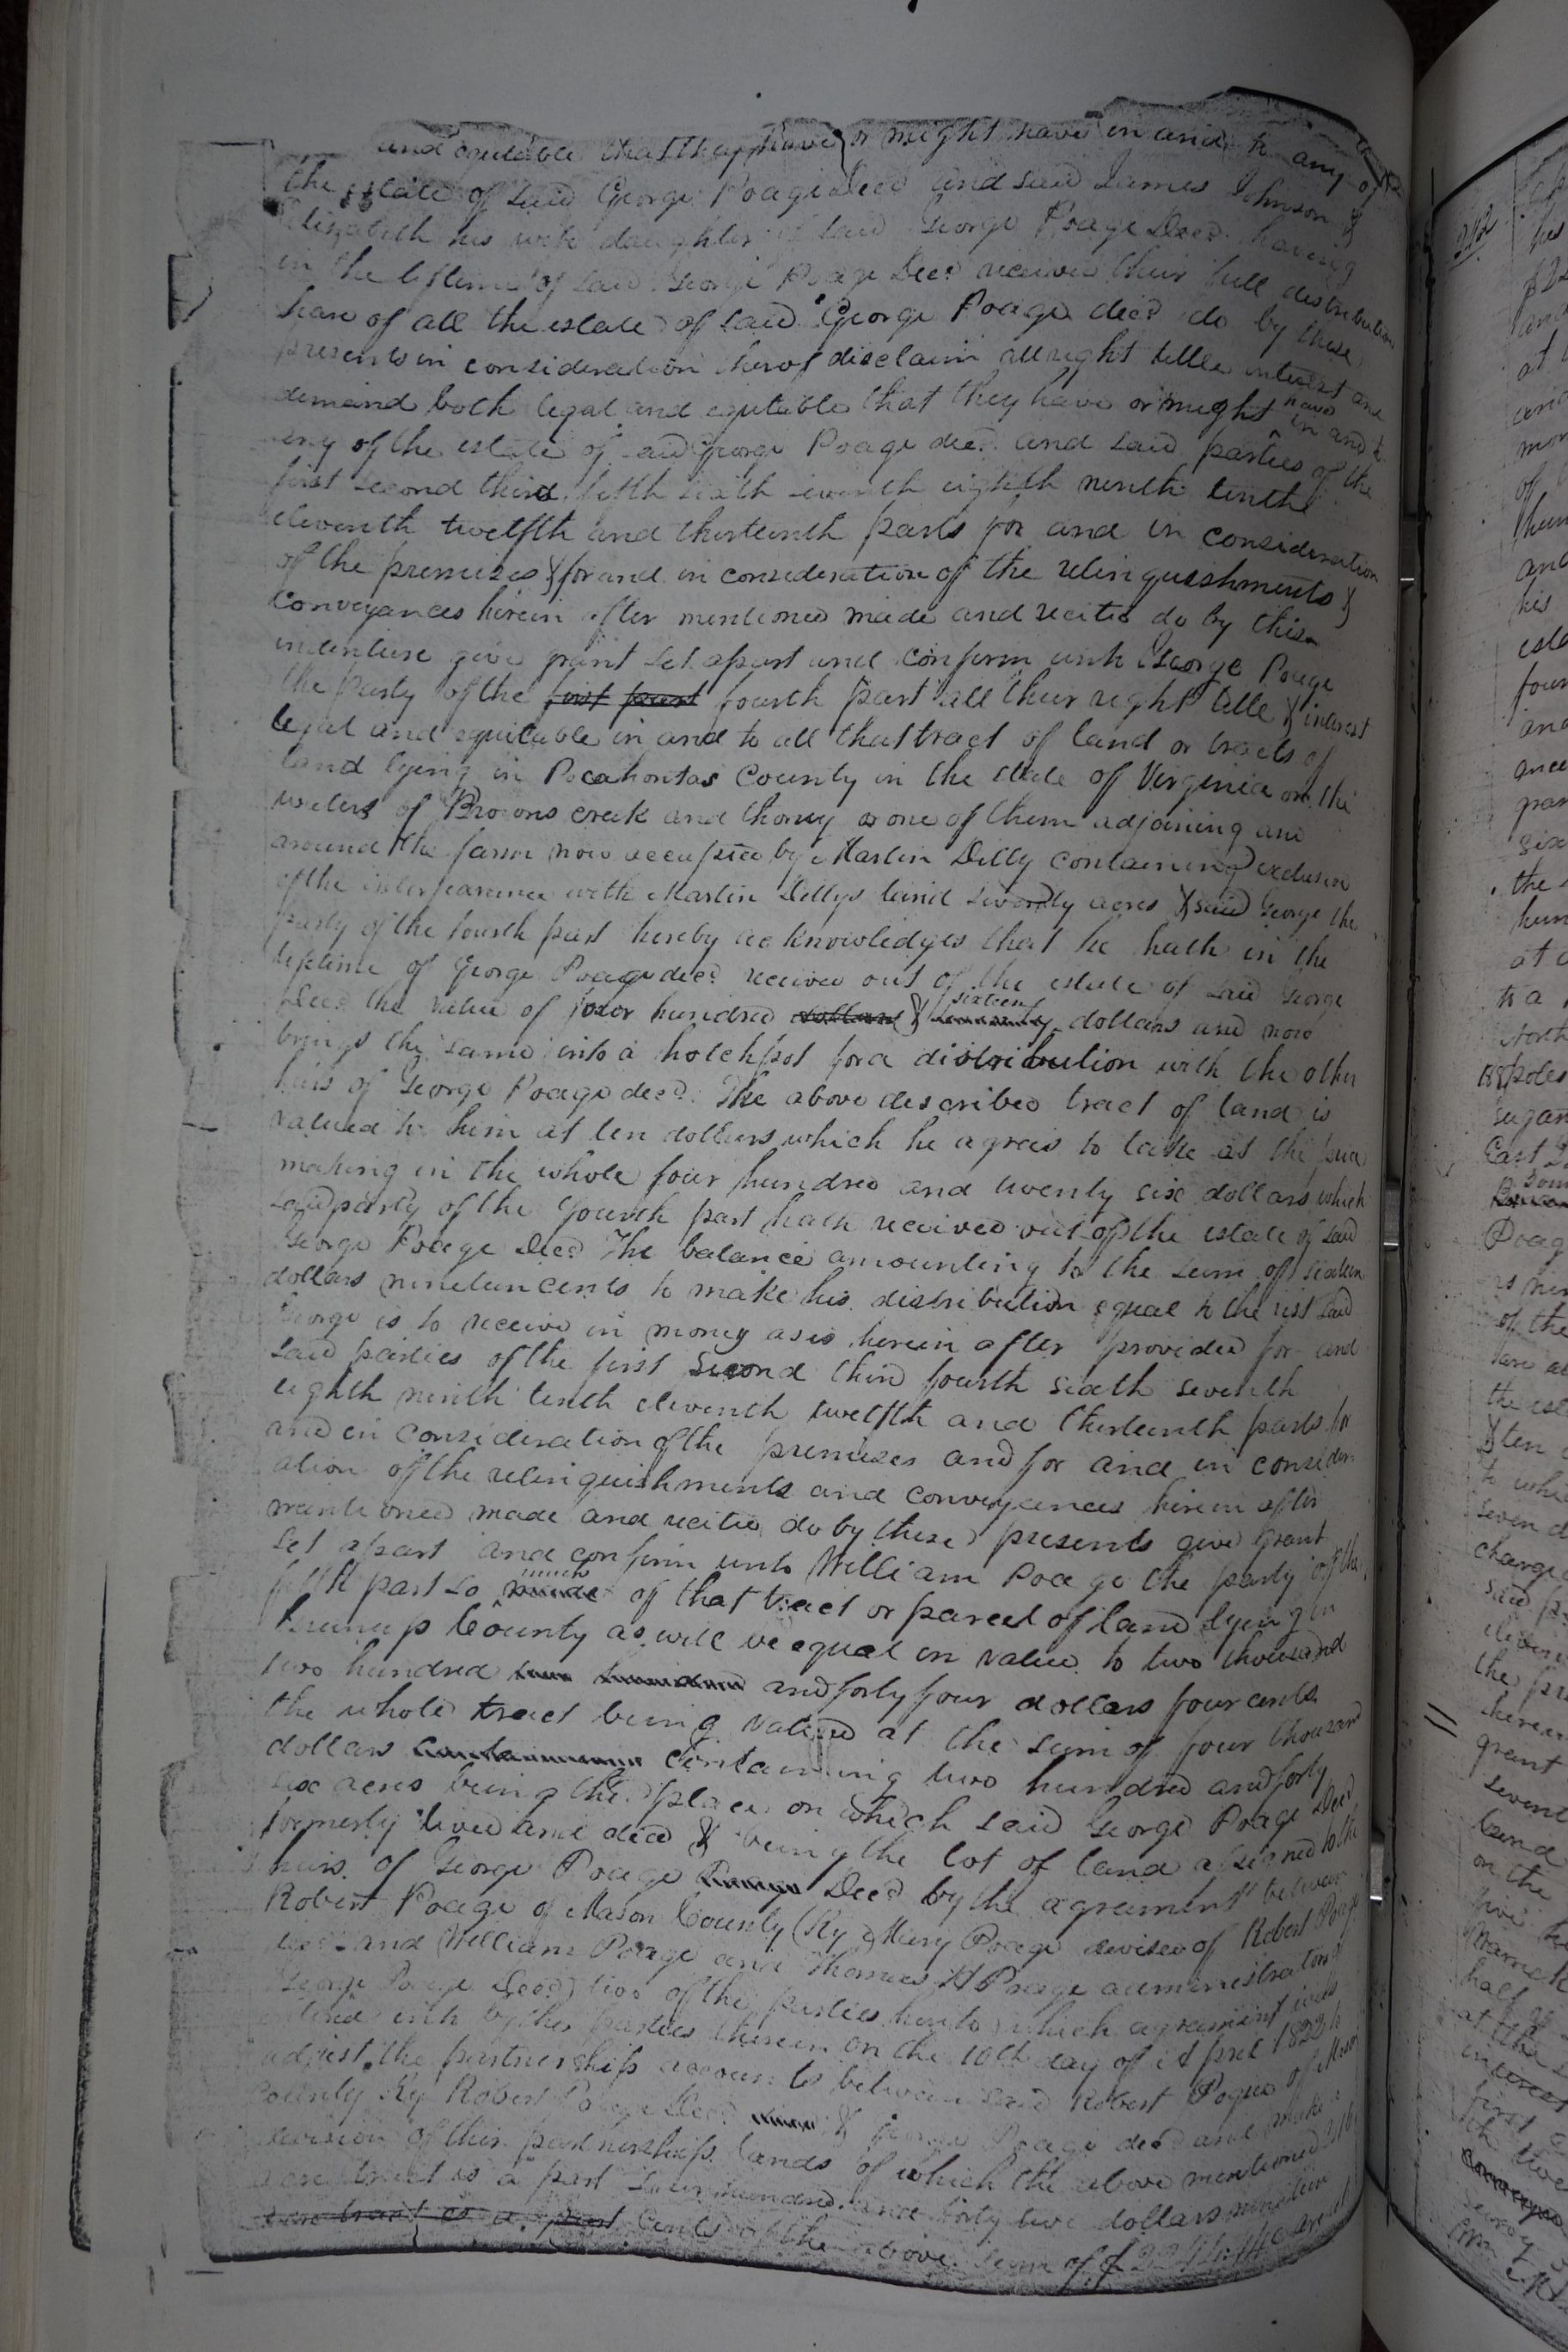 and equitable that they have or might have in and to any of
the estate of said George Poage Decd and said James Johnson &
Elizabeth his wife daughter of said George Poage Decd having
in the lifetime of said George Poage Decd received their full distribution
share of all the estate of said George Poage decd do by these
presents in consideration therof disclaim all right title interest and
demand both legal and equitable that they have or might have in and to
any of the estate of said George Poage decd and said parties of the
first second third fifth sixth seventh eighth ninth tenth
eleventh twelfth and thirteenth parts for and in consideration
of the premises & for and in consideration of the relinquishments &
conveyances herein after mentioned made and recited do by this
indenture give grant set apart and confirm unto George Poage
the party of the first part fourth part all their right title & interest
legal and equitable in and to all that tract of land or tracts of
land lying in Pocahontas County in the state of Virginia on the
waters of Browns creek and thorny or one of them adjoining and
around the farm now occupied by Martin Dilly containing exclusive
of the interfearence with Martin Dillys land seventy acres & said George the
party of the fourth part hereby acknowledges that he hath in the
lifetime of George Poage decd received out of the estate of said George
Decd the value of four hundred dollars & sixteen dollars and now
brings the same into a hotchpot for a distribution with the other
heirs of George Poage decd. The above described tract of land is
valued to him at ten dollars which he agrees to take at the price
making in the whole four hundred and twenty six dollars which
said party of the fourth part hath received out of the estate of said
George Poage Decd The balance amounting to the sum of sixteen
dollars nineteen cents to make his distribution equal to the rest said
George is to receive in money as is herein after provided for and
said parties of the first second third fourth sixth seventh
eighth ninth tenth eleventh twelfth and thirteenth parts for
and in consideration of the premises and for and in consider
ation of the relinquishments and conveyances herein after
mentioned made and recited do by these presents give grant
set apart and confirm unto William Poage the party of the
fifth part so much of that tract or parcel of land lying in
Greenup County as will be equal in value to two thousand
two hundred and forty four dollars four cents
the whole tract being valued at the sum of four thousand
dollars containing two hundred and forty
six acres being the place on which said George Poage Decd
formerly lived and died & being the lot of land assigned to the
heirs of George Poage Decd by the agreement between
Robert Poage of Mason County (Ky) Mary Poage devisee of Robert Poage
decd and William Poage and Thomas H Poage administrators
George Poage Decd) two of the parties hereto which agreement was
entered into by the parties therein on the 10th day of April 1822 to
adjust the partnership accounts between said Robert Pogue of Mason
County Ky Robert Poage Decd & George Poage decd and make a
division of their partnership lands of which the above mentioned 246
acre tract is a part Seven hundred and forty two dollars nineteen
acre tract is a part Cents of the above sum of $